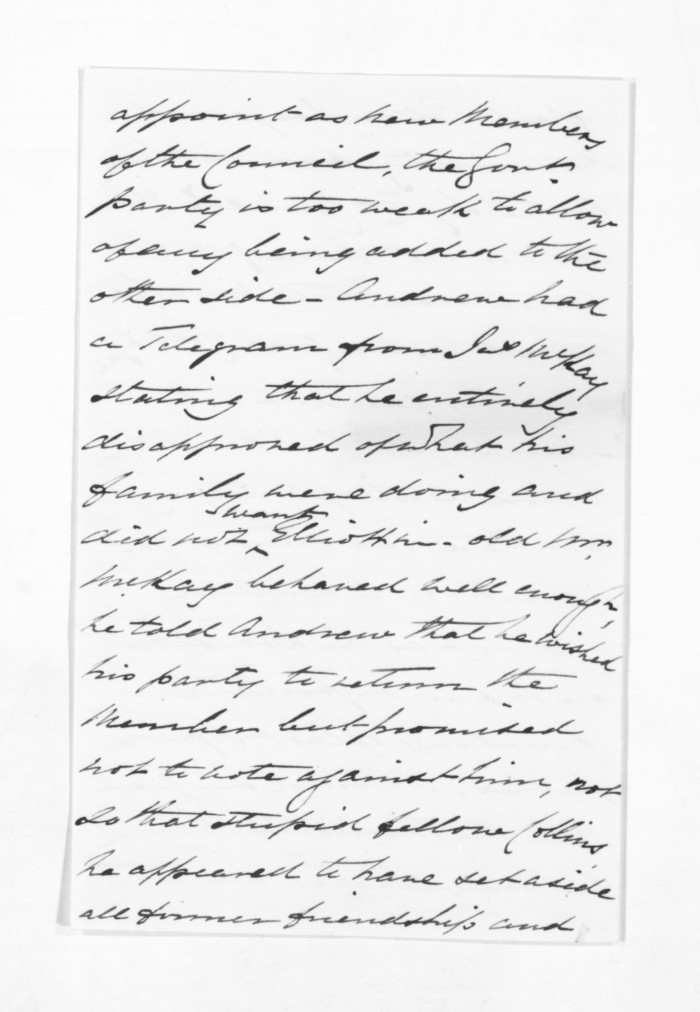 appoint as new Members
of the Council, the Govt
party is too weak to allow
of any being added to the
other side - Andrew had
a Telegram from Jas McKay
stating that he entirely
disapproved of what his
family were doing and
did not want Elliott in - old Mr.
McKay behaved well enough,
he told Andrew that he wished
his party to return the
Member but promised
not to vote against him, not
so that stupid fellow Collins
he appeared to have set aside
all former friendship and